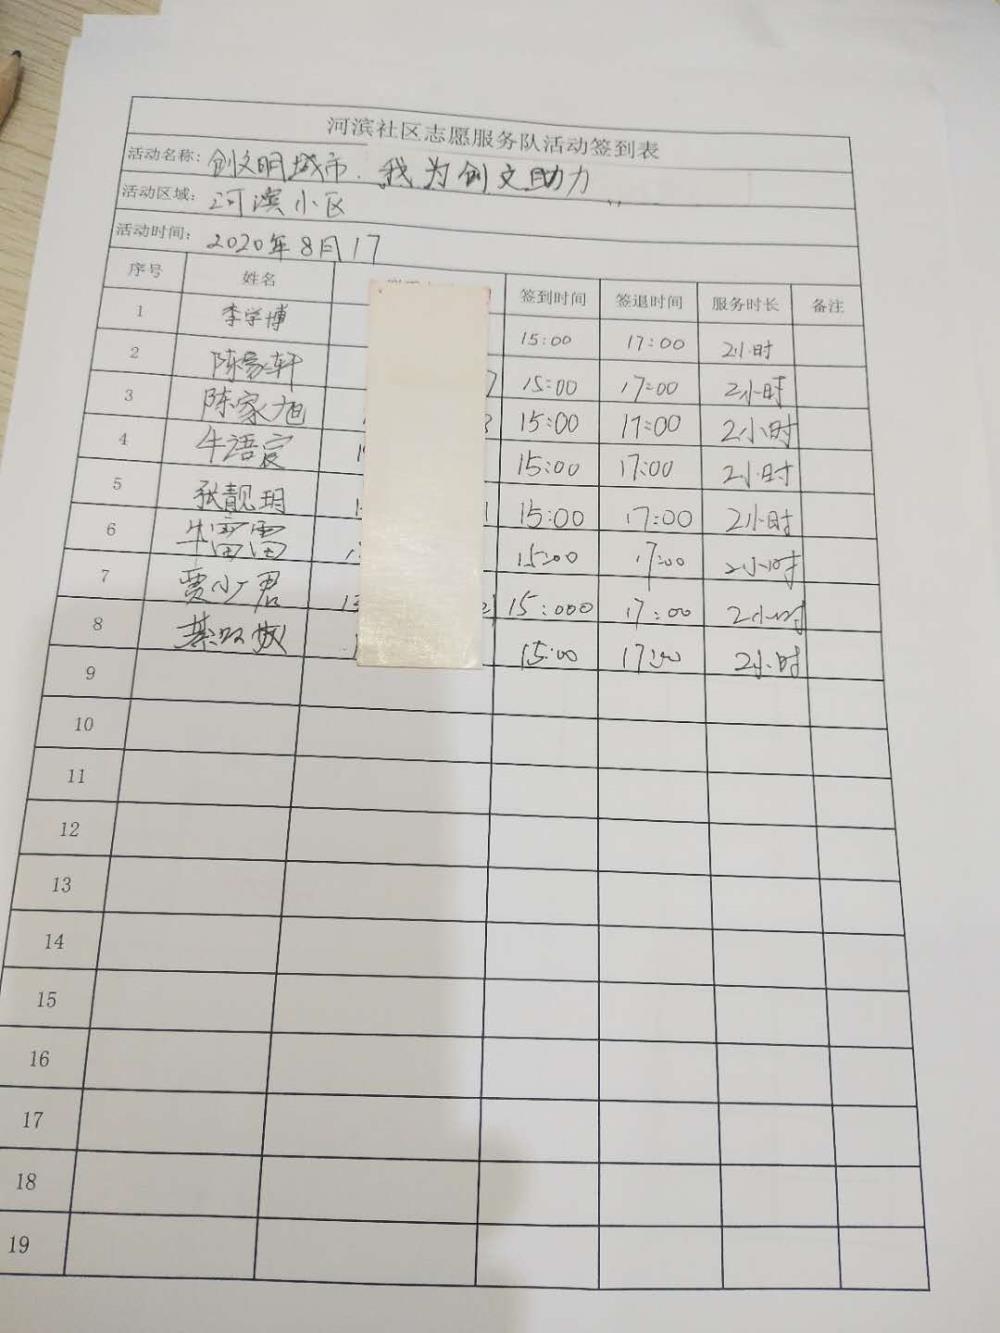 河滨社区志愿服务队活动签到表
活动名称: 创文明城市.我为创文助力
活动区域: 河滨小区
活动时间: 2020年8月17
序号 姓名 签到时间 签退时间 服务时长 备注
1 李学博 15:00 17:00 2小时
2 陈家轩 7 15:00 17:00 2小时
3 陈家旭 15:00 17:00 2小时
4 牛语宸 15:00 17:00 2小时
5 张靓玥 15:00 17:00 2小时
6 牛雷雷 15:00 17:00 2小时
7 贾小君 15:000 17:00 2小时
8 15:00 17:00 2小时
9
10
11
12
13
14
15
16
17
18
19